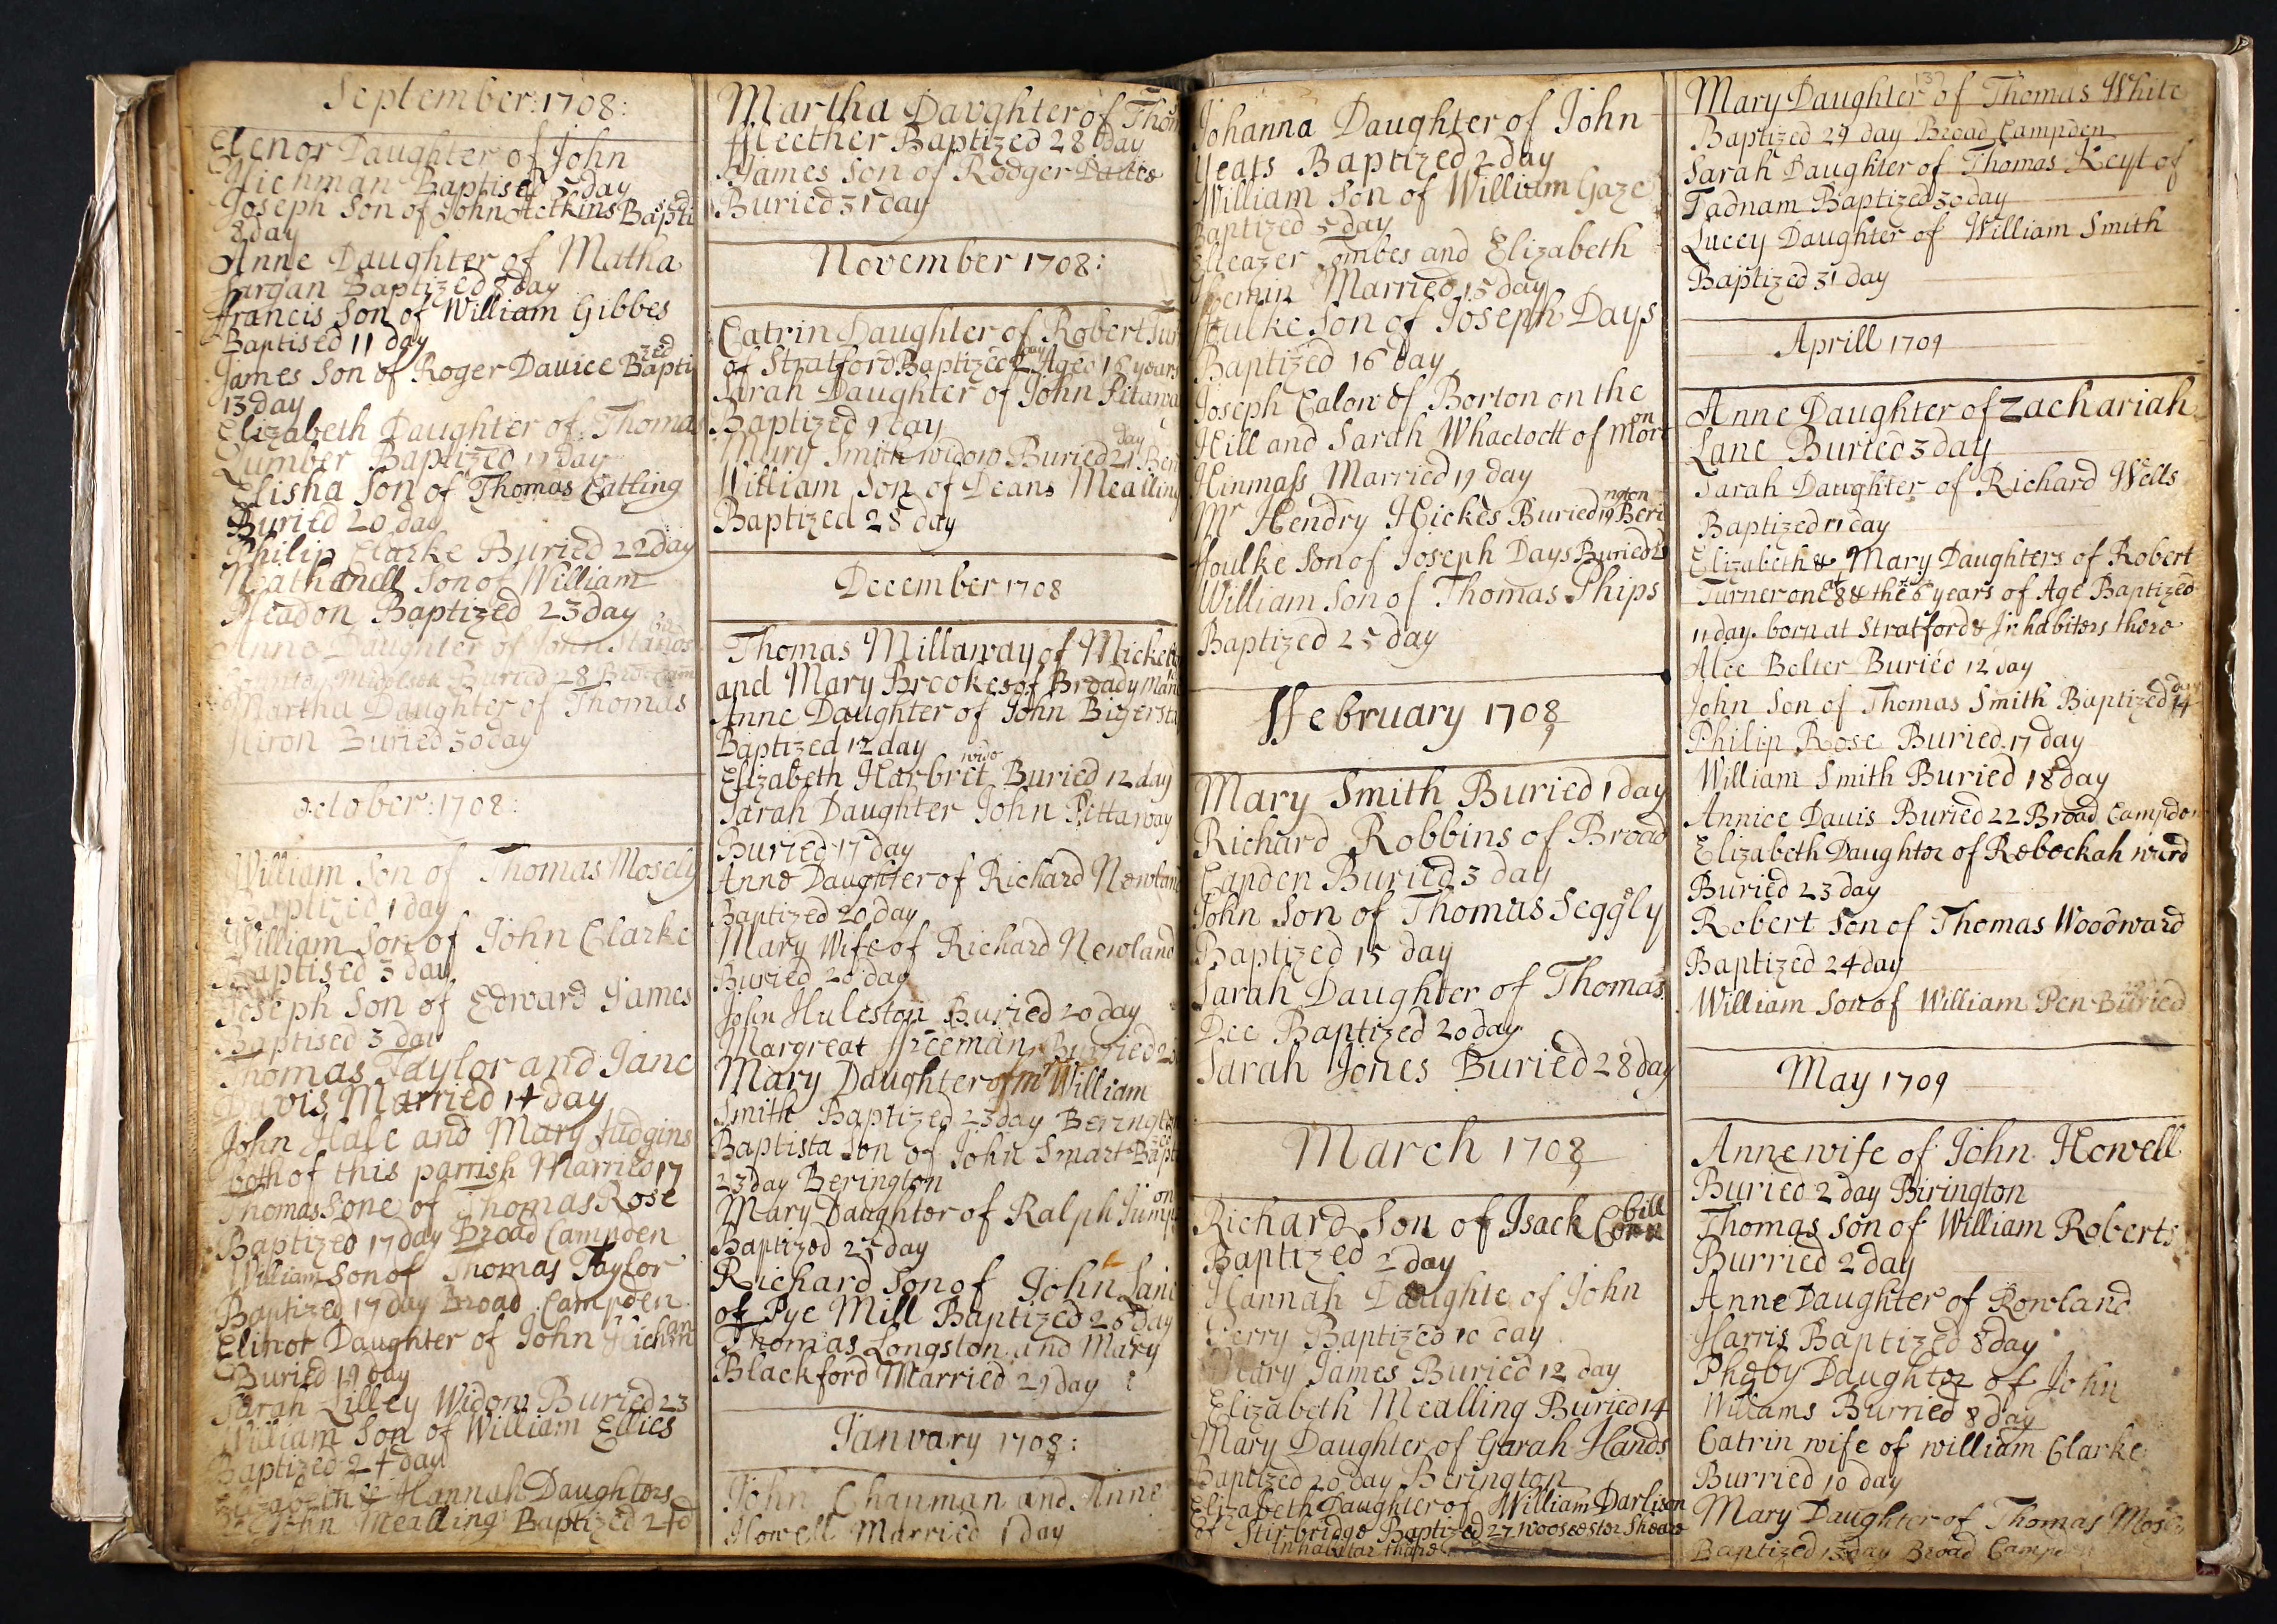 September: 1708:
Elenor Daughter of John
Hichman Baptised 5 day
Joseph Son of John Hetkins Bapti sed
8 day
Anne Daughter of Matha
Jargan Baptized 8 day
ffrancis Son of William Gibbes
Baptised 11 day
James Son of Roger Dauice Bapti zed
13 day
Elizabeth Daughter of Thoma
Lumber Baptized 17 day
Elisha Son of Thomas Catling
Buried 20 day
Philip Clarke Buried 22 day
Neathanell Son of William
Pleadon Baptized 23 day
Anne Daughter of John
Buried 28
Martha Daughter of Thomas
Buried 30 day
October: 1708:
William Son of Thomas Mosely
Baptized 1 day
William Son of John Clarke
Baptised 3 day
Joseph Son of Edward James
Baptised 3 day
Thomas Taylor and Jane
Davis Married 14 day
John Hale and Mary Judgins
both of this parrish Married 17
Thomas Sone of Thomas Rose
Baptized 17 day Broad Campden
William Son of Thomas Taylor
Baptized 17 day Broad Campden
Elinor Daughter of John Hichman
Buried 19 day
Sarah Lilley Widow Buried 23
William Son of William Ellies
Baptized 24 day
Elizabeth & Hannah Daughters
John Mealling Baptized 24 d
Martha Daughter of Thom
ffleether Baptized 28 day
James Son of Rodger Dauies
Buried 31 day
November 1708:
Catrin Daughter of Robert
of Stratford Baptized 2 day Aged 16 years
Sarah Daughter of John Pitawa
Baptized 9 day
Mary Smith widow Buried 21 day Beri
William Son of Deans Mealling
Baptized 28 day
December 1708
Thomas Millaway of Mickel
and Mary Brookes of Broady
Anne Daughter of John Bigersta
Baptized 12 day
Elizabeth Harbret wido Buried 12 day
Sarah Daughter John Pittaway
Buried 17 day
Anne Daughter of Richard Newland
Baptized 20 day
Mary Wife of Richard Newland
Buried 20 day
John Huleston Buried 20 day
Margreat ffreeman Buried
Mary Daughter of mr William
Smith Baptized 23 day Berington
Baptista Son of John Smart Bapti zed
23 day Berington
Mary Daughter of Ralph Jump on
Baptized 25 day
Richard Son of John Lane
of Pye Mill Baptized 26 day
Thomas Longston and Mary
Blackford Married 29 day
January 1708/9:
John Chanman and Anne
Howell Married 1 day
Johanna Daughter of John
Yeats Baptized 2 day
William Son of William Gaze
Baptized 5 day
Elleazer Tombes and Elizabeth
Married 15 day
ffoulke Son of Joseph Days
Baptized 16 day
Joseph Calow of Borton on the
Hill and Sarah Whacloctt of Mort on
Hinmass Married 17 day
Mr Hendry Hickes Buried 19 Beri ngton
ffoulke Son of Joseph Days Buried
William Son of Thomas Phips
Baptized 25 day
ffebruary 1708/9
Mary Smith Buried 1 day
Richard Robbins of Broad
Canden Buried 3 day
John Son of Thomas Seggely
Baptized 15 day
Sarah Daughter of Thomas
Dee Baptized 20 day
Sarah Jones Buried 28 day
March 1708/9
Richard Son of Isack Corn bill
Baptized 2 day
Hannah Daughte of John
Perry Baptized 10 day
Mary James Buried 12 day
Elizabeth Mealling Buried 14
Mary Daughter of Garah Hands
Baptized 20 day Berington
Elizabeth Daughter of William Darlison
of Stirbridge Baptized 27 Woosester Sheare
Inhabitar thare
137
Mary Daughter of Thomas White
Baptized 29 day Broad Campden
Sarah Daughter of Thomas Keyt of
Tadnam Baptized 30 day
Lucey Daughter of William Smith
Baptized 31 day
Aprill 1709
Anne Daughter of Zachariah
Lane Buried 3 day
Sarah Daughter of Richard Wells
Baptized 11 day
Elizabeth & Mary Daughters of Robert
Turner one 8 & the ot 6 years of Age Baptized
11 day. born at Stratford & Inhabiters there
Alce Belter Buried 12 day
John Son of Thomas Smith Baptized 14 day
Philip Rose Buried 17 day
William Smith Buried 18 day
Annice Dauis Buried 22 Broad Campden
Elizabeth Daughter of Rebeckah ward
Buried 23 day
Robert Son of Thomas Woodward
Baptized 24 day
William Son of William Pen Buried
May 1709
Anne wife of John Howell
Buried 2 day Birington
Thomas Son of William Roberts
Burried 2 day
Anne Daughter of Rowland
Harris Baptized 8 day
Pheby Daughter of John
Williams Burried 8 day
Catrin wife of william Clarke
Burried 10 day
Mary Daughter of Thomas Mosly
Baptized 15 day Broad Campden